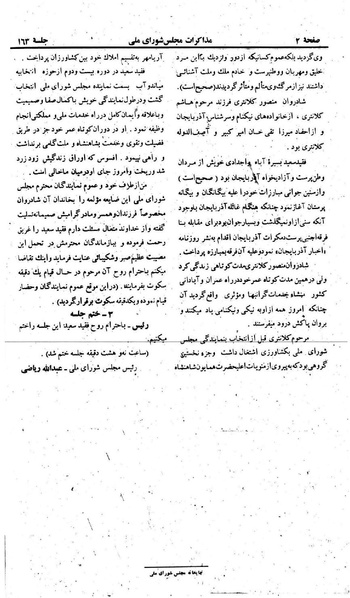 صفحهٔ ۲
مذاکرات مجلس شورای ملی
جلسهٔ ۱۶۳
وی گردید بلکه عموم کسانیکه از دور و نزدیک با این مرد
خلیق ومهربان ووطنپرست و خادم ملک وملت آشنائی
داشتند نیز از مرگ وی متألم و متأثر گردیدند (صحیح است)
شادروان منصور کلانتری فرزند مرحوم هاشم
کلانتری، از خانواده‌های نیکنام وسرشناس آذربایجان
و از احفاد میرزا تقی خان امیر کبیر و آصف‌الدوله
کلانتری بود.
فقید سعید بسیرهٔ آباء واجدادی خویش از مردان
وطن‌پرست و آزادیخواه آذربایجان بود (صحیح است)
واز سنین جوانی مبارزات خود را علیه بیگانگان و بیگانه
پرستان آغاز نمود چنانکه هنگام غائله آذربایجان باوجود
آنکه سنی از او نمیگذشت وبسیار جوان بود برای مقابله با
فرقه اجنبی پرست دمکرات آذربایجان اقدام به نشر روزنامه
«اخبار آذربایجان» نمود و علیه آن فرقه بمبارزه پرداخت.
شادروان منصور کلانتری مدت کوتاهی زندگی کرد
ولی در همین مدت کوتاه عمر خود در راه عمران و آبادانی
کشور منشاء خدمات گرانبها ومؤثری واقع گردید آن
چنانکه امروز همه از او به نیکی ونیکنامی یاد میکنند و
بروان پاکش درود میفرستند.
مرحوم کلانتری قبل از انتخاب بنمایندگی مجلس
شورای ملی بکشاورزی اشتغال داشت وجزء نخستین
گروهی بود که به پیروی از منویات اعلیحضرت همایون شاهنشاه
آریامهر به تقسیم املاک خود بین کشاورزان پرداخت.
فقید سعید در دوره بیست ودوم از حوزه انتخابیه
میاندوآب بسمت نماینده مجلس شورای ملی انتخاب
گشت و در طول نمایندگی خویش با کمال صفا و صمیمیت
وباعلاقه وایمان کامل در راه خدمات ملی و مملکتی انجام
وظیفه نمود. او در دوران کوتاه عمر خود جز در طریق
فضیلت وتقوی وخدمت بشاهنشاه و ملت گامی برنداشت
و راهی نپیمود. افسوس که اوراق زندگیش زود زرد
شد وریخت وامروز جای او در میان ما خالی است.
من از طرف خود و عموم نمایندگان محترم مجلس
شورای ملی این ضایعه مؤلمه را بخاندان آن شادروان
مخصوصاً فرزندان وهمسر ومادر گرامیش صمیمانه تسلیت
گفته و از خداوند متعال مسئلت دارم فقید سعید را غریق
رحمت فرموده و به بازماندگان محترمش در تحمل این
مصیبت عظیم صبر وشکیبائی عنایت فرماید و اینک تقاضا
میکنم باحترام روح آن مرحوم در حال قیام یک دقیقه
سکوت فرمایند. (در این موقع عموم نمایندگان وحضار
قیام نموده و یکدقیقه سکوت برقرار گردید)
۳ - ختم جلسه
رئیس - باحترام روح فقید سعید این جلسه را ختم
میکنیم.
(ساعت نه و هشت دقیقه جلسه ختم شد)
رئیس مجلس شورای ملی - عبدالله ریاضی
چاپخانه مجلس شورای ملی